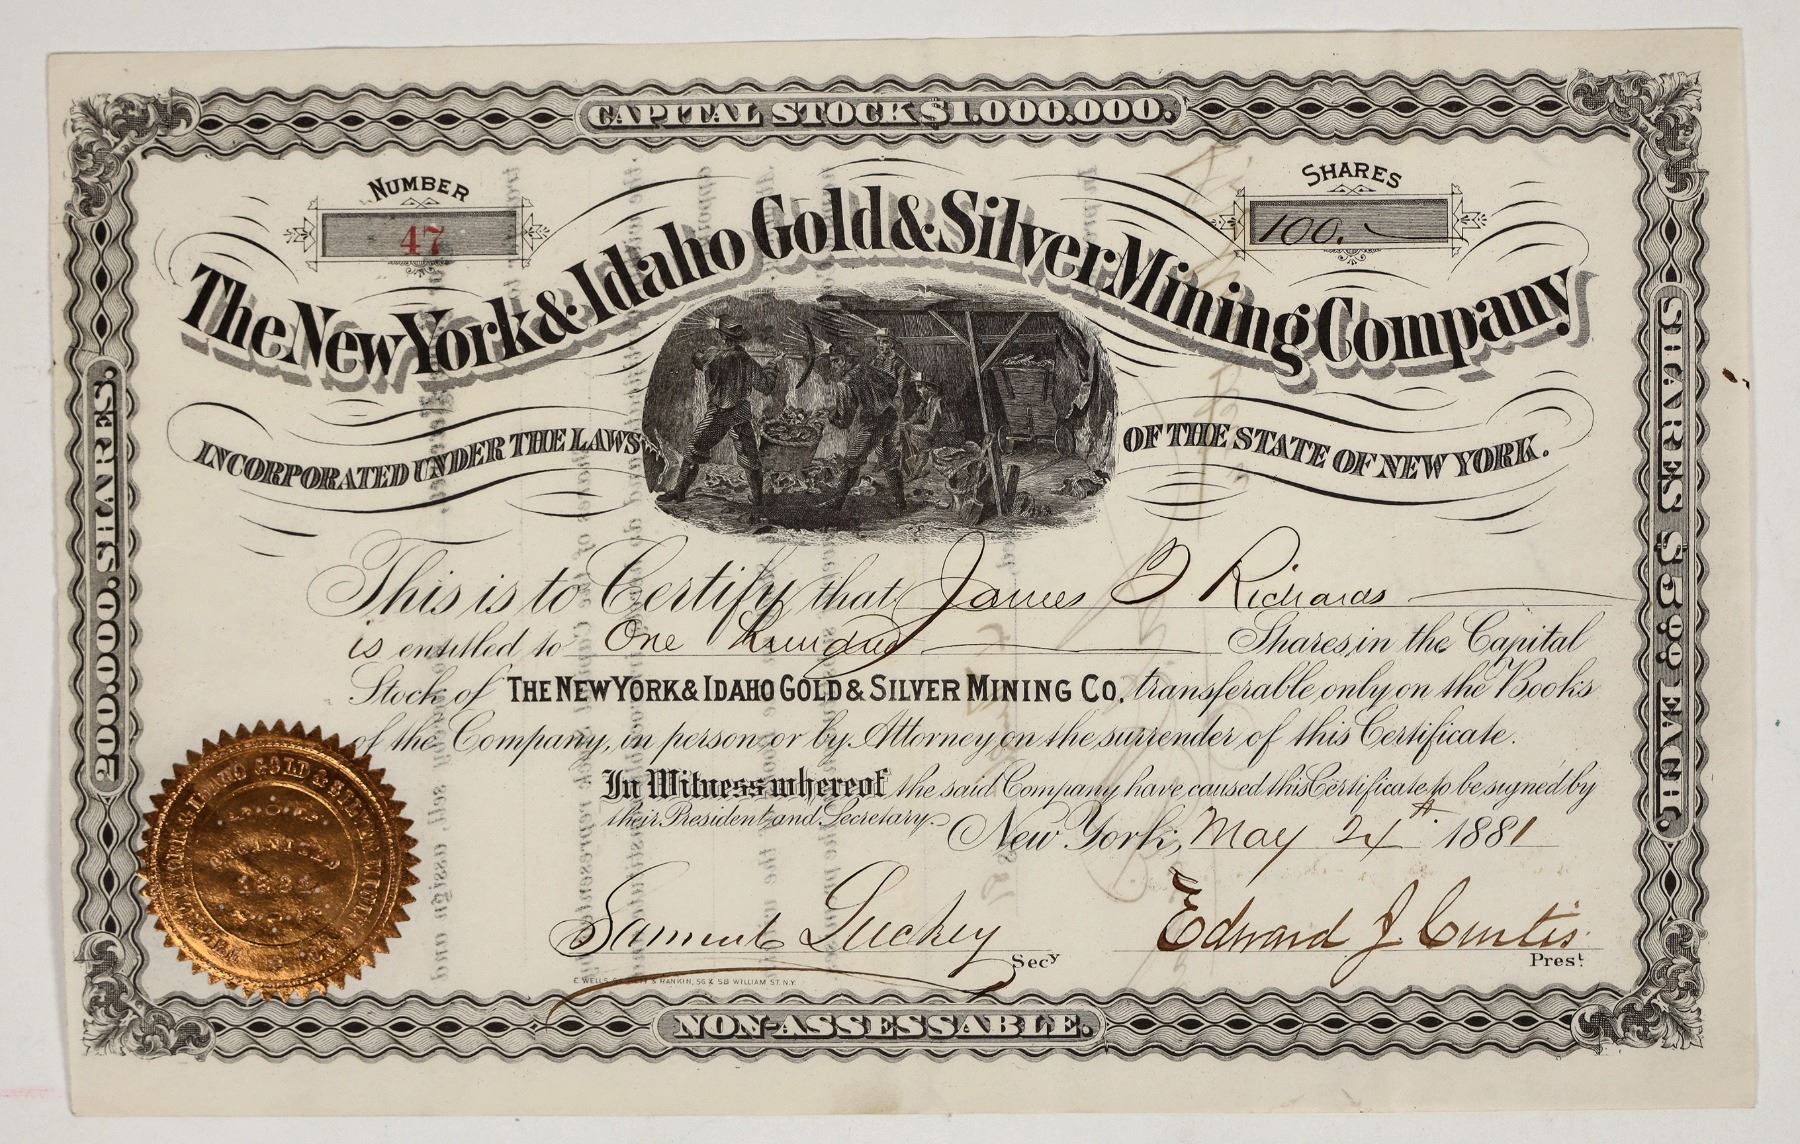 CAPITAL STOCK $1.000.000.
NUMBER
47
SHARES
100.
The New York & Idaho Gold & Silver Mining Company
INCORPORATED UNDER THE LAWS OF THE STATE OF NEW YORK.
200.000. SHARES.
SHARES $5.00 EACH.
This is to Certify that James B Richards
is entitled to One hundred Shares, in the Capital
Stock of THE NEW YORK & IDAHO GOLD & SILVER MINING CO. transferable only on the Books
of the Company, in person or by Attorney on the surrender of this Certificate.
In Witness whereof the said Company have caused this Certificate to be signed by
their President and Secretary.
New York, May 24th 1881
Samuel Luckey Secy
Edward J Curtis Prest
IDAHO GOLD & SILVER MINING
1881
E. WELLS & RANKIN, 56 & 58 WILLIAM ST. N.Y.
NON-ASSESSABLE.